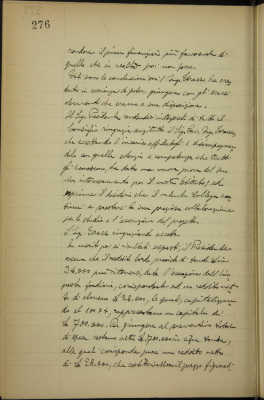 276
rendere il piano finanziario più favorevole di
quello che in realtà poi non fosse.
Tali sono le conclusioni cui l'Ing. Grasso ha cre
duto in coscienza di poter giungere con gli scarsi
elementi che erano a sua disposizione.
Il Sig. Presidente, rendendosi interprete di tutto il
Consiglio ringrazia anzitutto il Sig. Ing. Grasso,
che accettando l'incarico affidatogli e disimpegnan
dolo con quello zelo e competenza che tutti
gli riconoscono, ha dato una nuova prova del suo
vivo interessamento per il nostro Istituto, ed
esprime il desiderio che il valente Collega con
tinui a prestare la sua preziosa collaborazione
per lo studio e l'esecuzione del progetto.
L'Ing. Grasso ringraziando accetta.
In merito poi ai risultati esposti, il Presidente
osserva che il reddito lordo previsto di
34.000 può ritenersi, data l'esenzione dell'im
posta fondiaria, corrispondente ad un reddito net
to di almeno £ 28.000, le quali, capitalizzan
do al 100:4, rappresentano un capitale di
£ 700.000. Per giungere al preventivo totale
di spesa restano altre £ 700.000 a
alle quali corrisponde pure un reddito netto
di £ 28.000, che costituirebbero il prezzo figurati